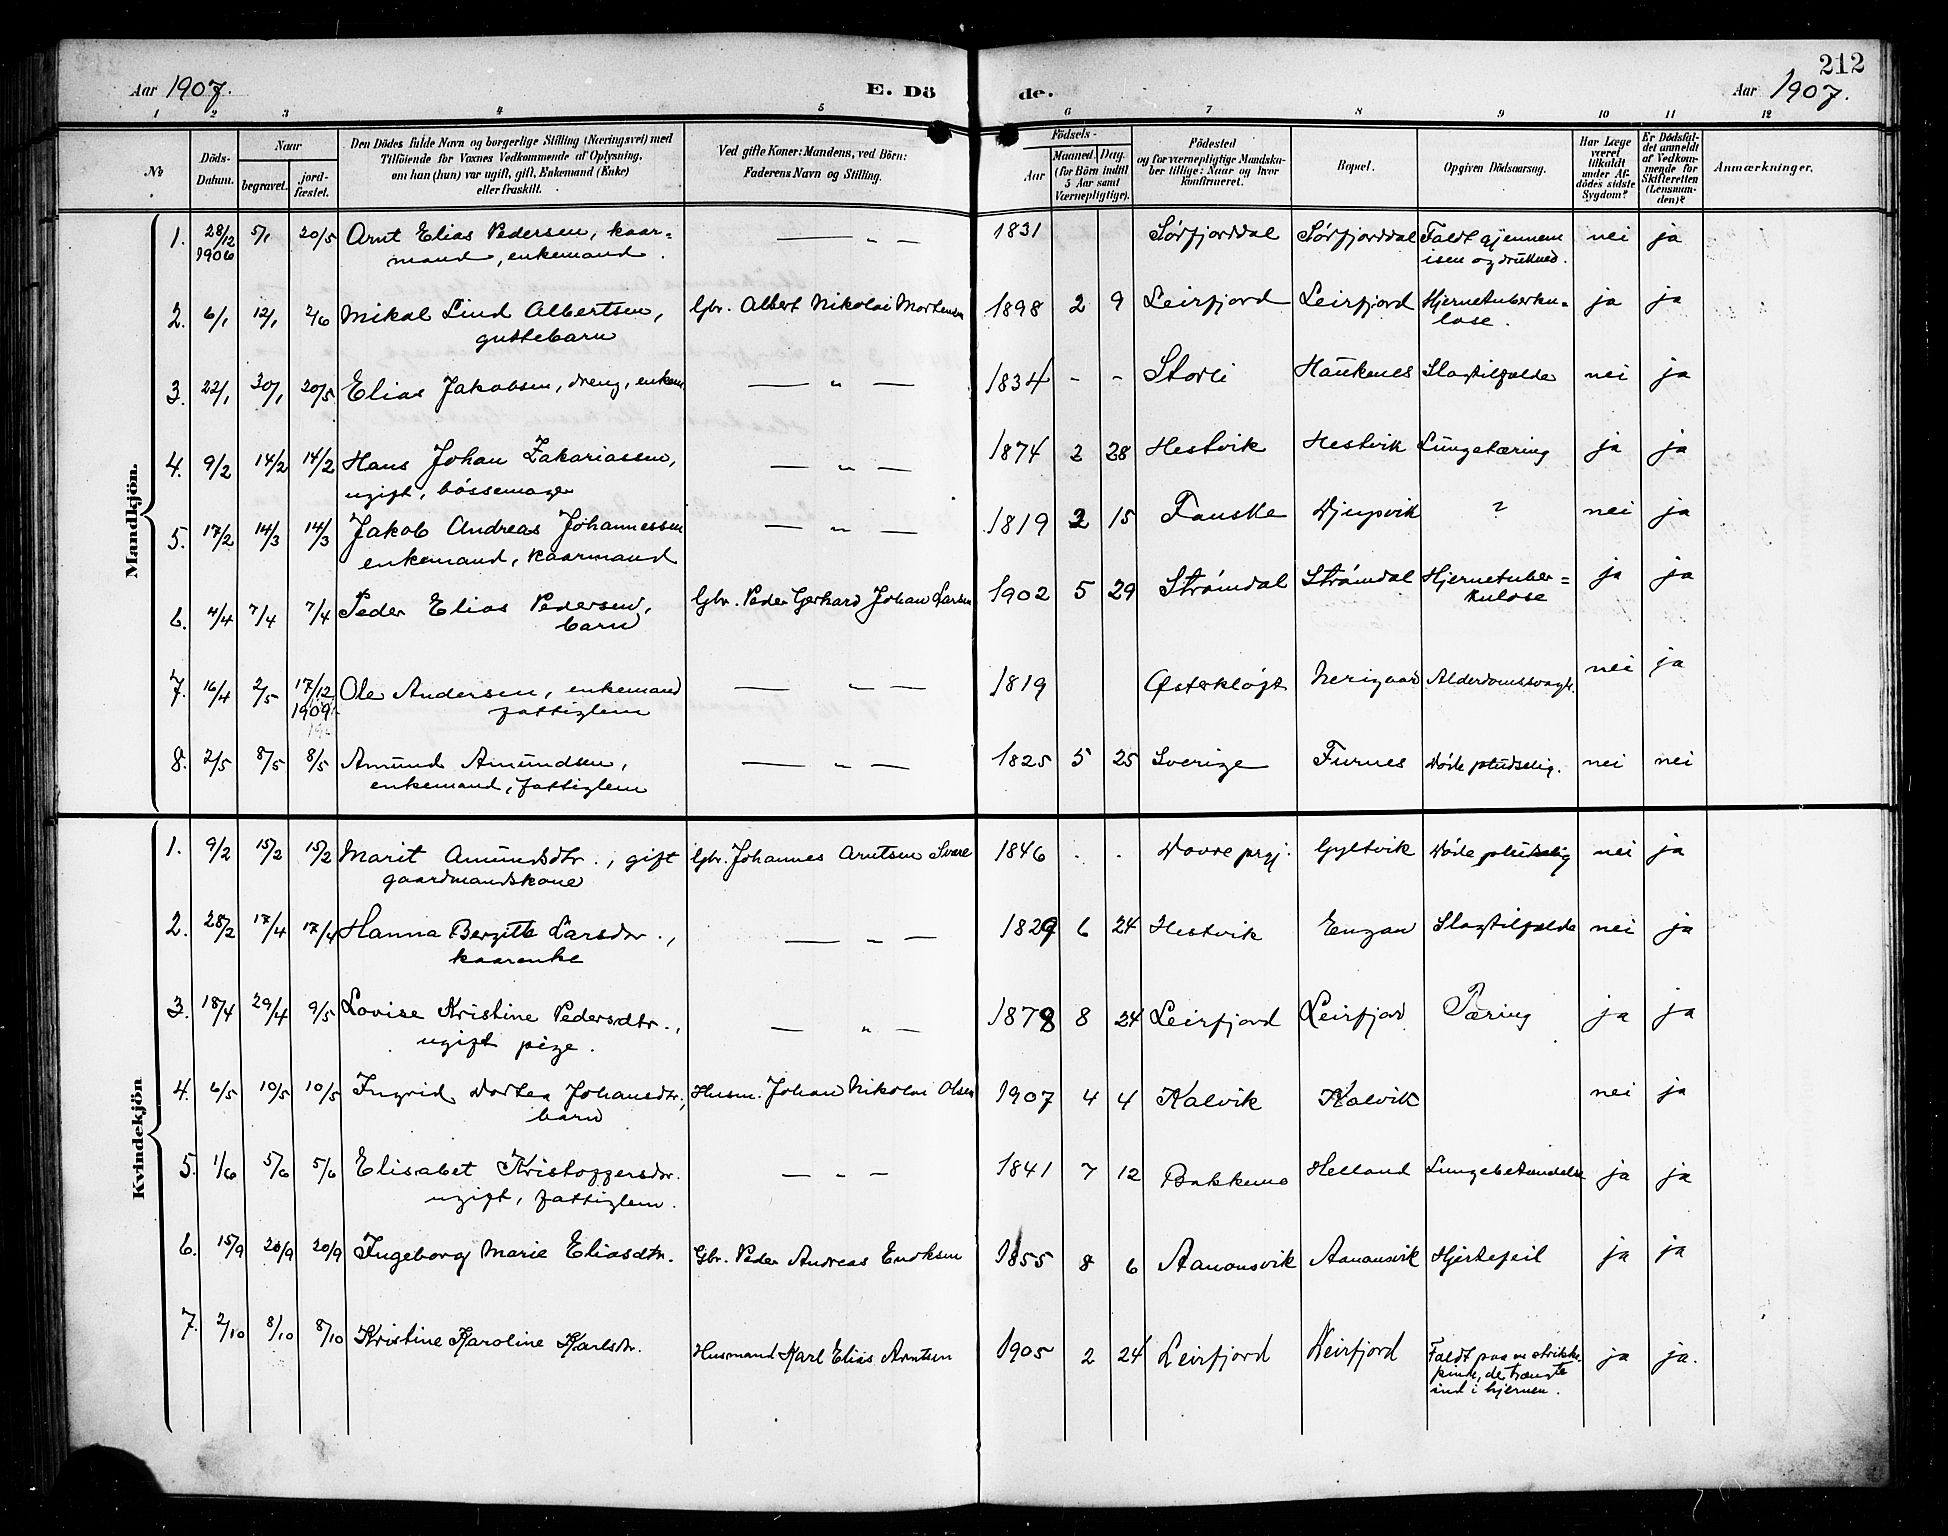 212
Aar 1907.
E. Dö
de.
Aar 1907.
1 2 3 4 5 6 7 8 9 10 11 12
No
Döds-
Datum.
Naar
begravet.
jord-
fæstet.
Den Dödes fulde Navn og borgerlige Stilling (Næringsvei) med
Tilföiende for Voxnes Vedkommende af Oplysning,
om han (hun) var ugift, gift, Enkemand (Enke)
eller fraskilt.
Ved gifte Koner: Mandens, ved Börn:
Faderens Navn og Stilling.
Födsels-
Aar
Maaned. Dag.
(for Börn indtil
5 Aar samt
Værnepligtige).
Födested
og for værnepligtige Mandska-
ber tillige: Naar og hvor
konfirmeret.
Bopæl.
Opgiven Dödsaarsag.
Har Læge
været
tilkaldt
under Af-
dödes sidste
Sygdom?
Er Dödsfal-
det anmeldt
af Vedkom-
mende for
Skifteretten
(Lensman-
den)?
Anmærkninger.
Mandkjön.
1. 28/12 5/1 20/5 Arnt Elias Pedersen, kaar= — " — 1831 Sörfjorddal Sörfjorddal Faldt gjennem nei ja
1906 mand, enkemand. isen og drukned.
2. 6/1 12/1 2/6 Mikal Lind Albertsen, Gbr. Albert Nikolai Mortensen 1898 2 9 Leirfjord Leirfjord Hjernetuberku= ja ja
guttebarn lose.
3. 22/1 30/1 20/5 Elias Jakobsen, dreng, enkem — " — 1834 - - Storli Haukenes Slagtilfælde nei ja
4. 9/2 14/2 14/2 Hans Johan Zakariassen, — " — 1874 2 28 Hestvik Hestvik Lungetæring ja ja
ugift, bössemager
5. 17/2 14/3 14/3 Jakob Andreas Johannessen — " — 1819 2 15 Fauske Djupvik ? nei ja
enkemand, kaarmand
6. 4/4 7/4 7/4 Peder Elias Pedersen, Gbr. Peder Gerhard Johan Larsen 1902 5 29 Strömdal Strömdal Hjernetuber= ja ja
barn kulose
7. 16/4 2/5 17/12 Ole Andersen, enkemand — " — 1819 Østerkløft Nerigaard Alderdomssvagh. nei ja
1909 fattiglem
8. 2/5 8/5 8/5 Amund Amundsen, — " — 1825 5 25 Sverige Furnes Döde pludselig. nei nei
enkemand, fattiglem
Kvindekjön
1. 9/2 15/2 15/2 Marit Amundsdtr., gift Gbr. Johannes Arntsen Svare 1846 . . Dovre prgj. Gyltvik Döde pludselig nei ja
gaardmandskone
2. 28/2 17/4 17/4 Hanna Bergitte Larsdtr., — " — 1829 6 24 Hestvik Engan Slagtilfælde nei ja
kaarenke
3. 18/4 29/4 9/5 Lovise Kristine Pedersdtr., — " — 1878 8 24 Leirfjord Leirfjord Tæring ja ja
ugift pige.
4. 6/5 10/5 10/5 Ingrid Dortea Johansdtr., Husm. Johan Nikolai Olsen 1907 4 4 Kalvik Kalvik nei ja
barn
5. 1/6 5/6 5/6 Elisabet Kristoffersdtr. — " — 1841 7 12 Bakkemo Helland Lungebetændelse ja ja
ugift, fattiglem.
6. 15/9 20/9 20/9 Ingeborg Marie Eliasdtr. Gbr. Peder Andreas Eriksen 1855 8 6 Aanonsvik Aanonsvik Hjertefeil ja ja
7. 2/10 8/10 8/10 Kristine Karoline Karlsdtr. Husmand Karl Elias Arntsen 1905 2 24 Leirfjord Leirfjord Faldt paa en strikke ja ja.
pinde, der trængte
ind i hjernen.